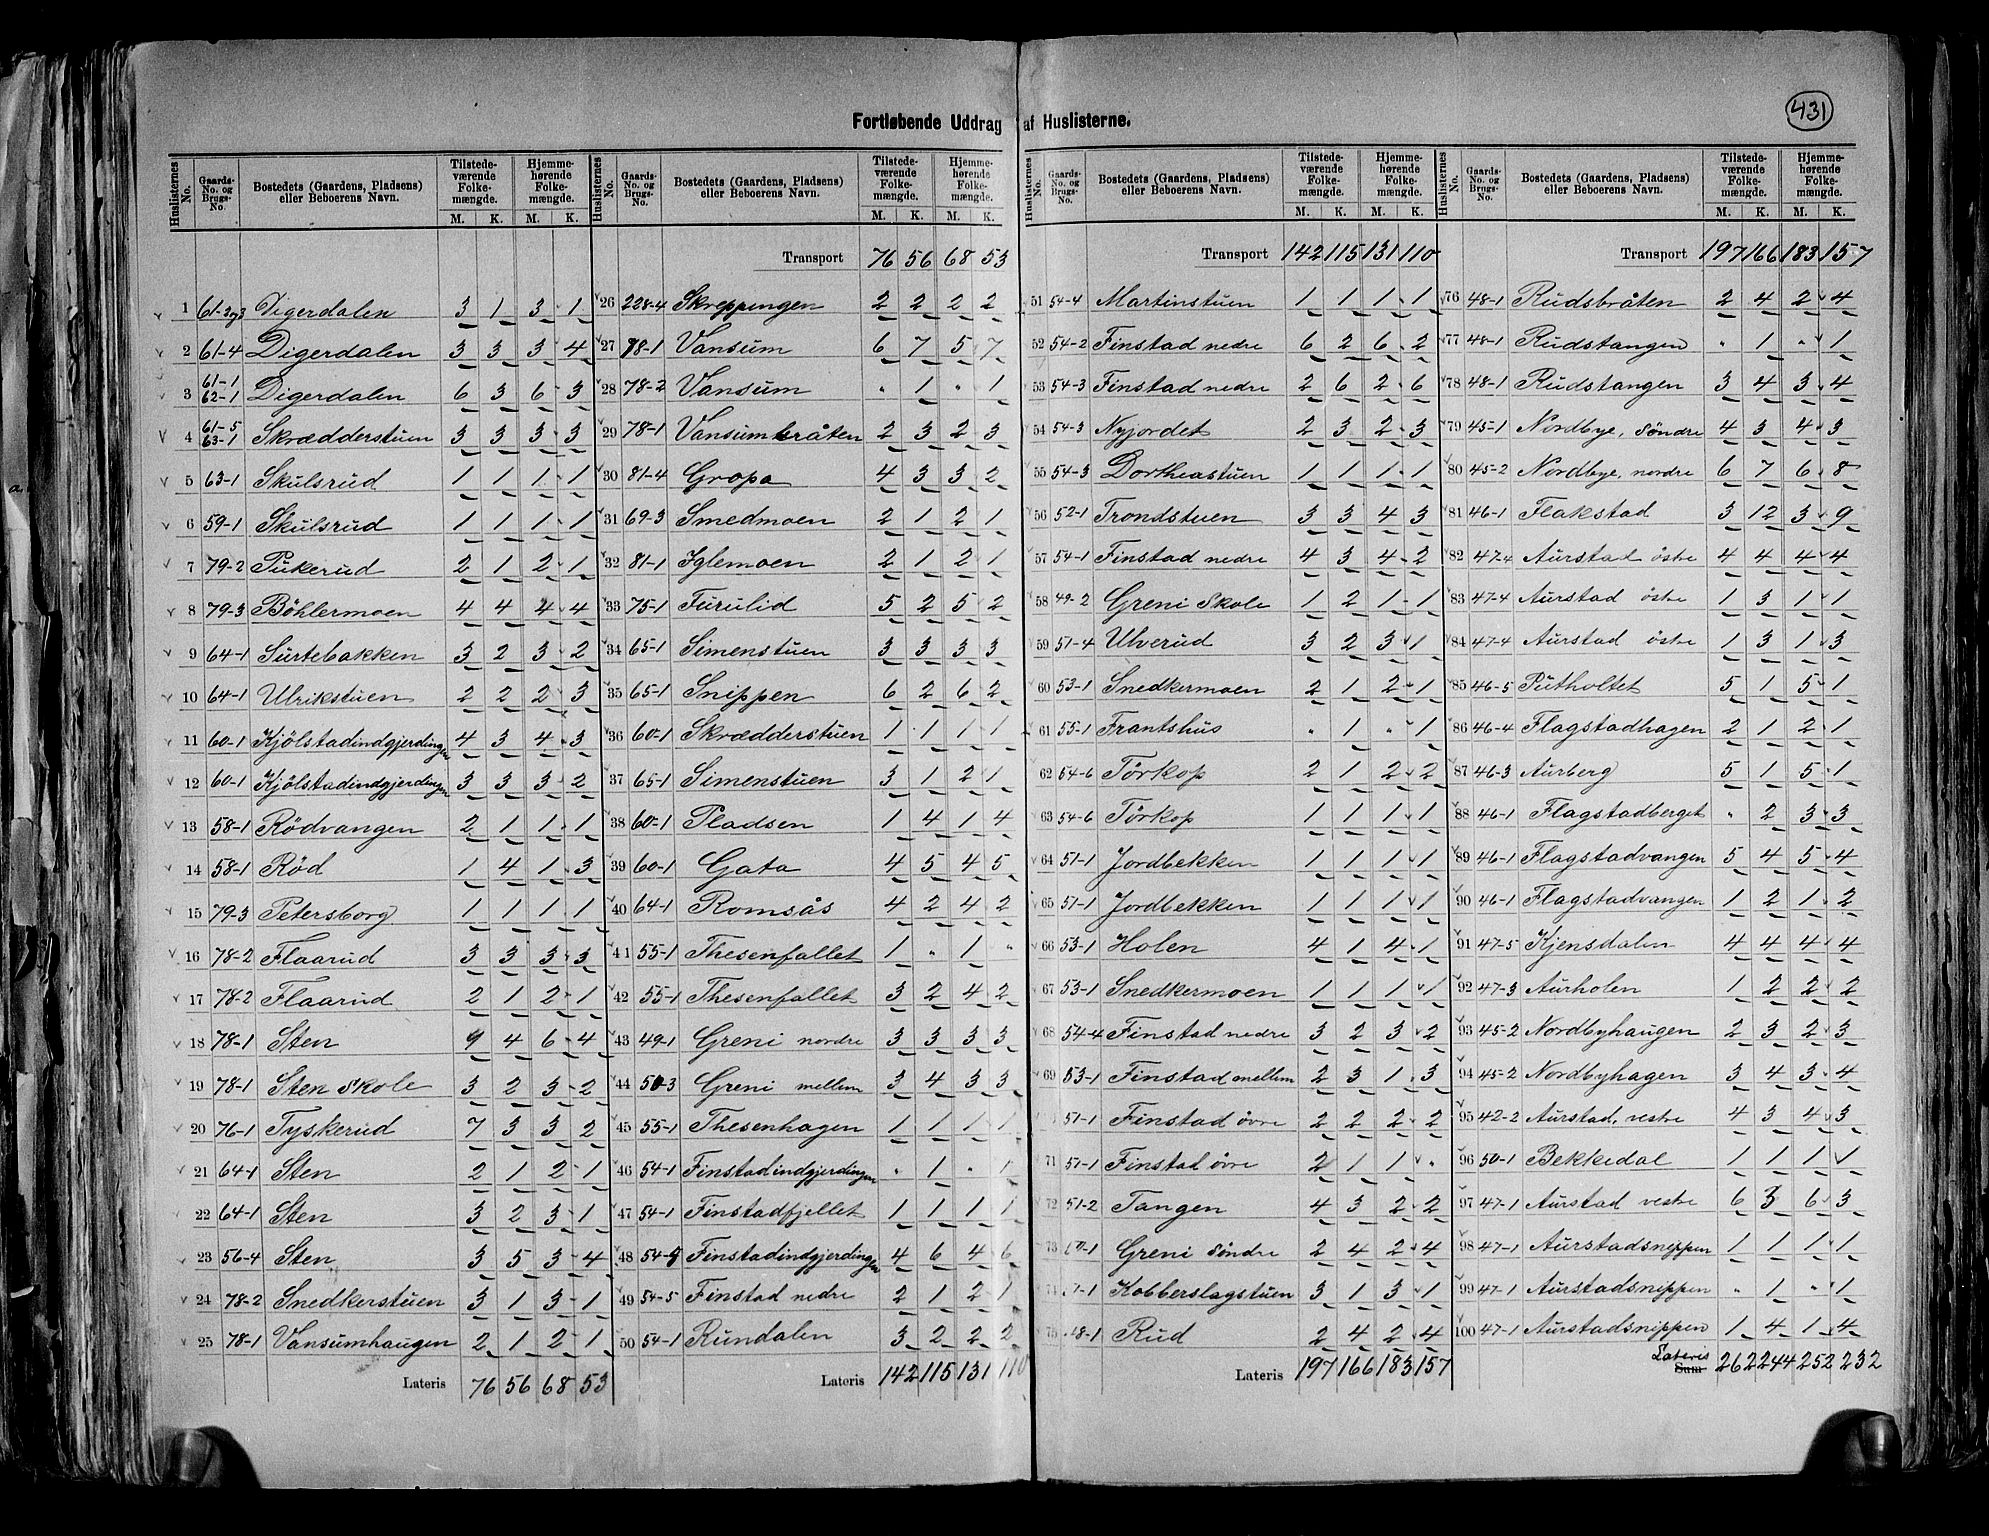 431
Fortløbende Uddrag af Huslisterne.
Huslisternes No. Gaards-No. og Brugs-No. Bostedets (Gaardens, Pladsens) eller Beboerens Navn. Tilstedeværende Folkemængde. M. K. Hjemmehørende Folkemængde. M. K.
1 61-2og3 Digerdalen 3 1 3 1
2 61-4 Digerdalen 3 3 3 4
3 61-1 62-1 Digerdalen 6 3 6 3
4 61-5 63-1 Skrædderstuen 3 3 3 3
5 63-1 Skulsrud 1 1 1 1
6 59-1 Skulsrud 1 1 1 1
7 79-2 Pukerud 2 1 2 1
8 79-3 Böhlermoen 4 4 4 4
9 64-1 Surtebakken 3 2 3 2
10 64-1 Ulrikstuen 2 2 2 3
11 60-1 Kjölstadindgjerdingen 4 3 4 3
12 60-1 Kjölstadindgjerdingen 3 3 3 2
13 58-1 Rödvangen 2 1 1 1
14 58-1 Röd 1 4 1 3
15 79-3 Petersborg 1 1 1 1
16 78-2 Flaarud 3 3 3 3
17 78-2 Flaarud 2 1 2 1
18 78-1 Sten 9 4 6 4
19 78-1 Sten Skole 3 2 3 2
20 76-1 Tyskerud 7 3 3 2
21 64-1 Sten 2 1 2 1
22 64-1 Sten 3 2 3 1
23 56-4 Sten 3 5 3 4
24 78-2 Snedkerstuen 3 1 3 1
25 78-1 Vansumhaugen 2 1 2 1
Lateris 76 56 68 53
Huslisternes No. Gaards-No. og Brugs-No. Bostedets (Gaardens, Pladsens) eller Beboerens Navn. Tilstedeværende Folkemængde. M. K. Hjemmehørende Folkemængde. M. K.
Transport 76 56 68 53
26 228-4 Skreppingen 2 2 2 2
27 78-1 Vansum 6 7 5 7
28 78-2 Vansum " 1 " 1
29 78-1 Vansumbråten 2 3 2 3
30 81-4 Gropa 4 3 3 2
31 69-3 Smedmoen 2 1 2 1
32 81-1 Iglemoen 2 1 2 1
33 75-1 Furulid 5 2 5 2
34 65-1 Simenstuen 3 3 3 3
35 65-1 Snippen 6 2 6 2
36 60-1 Skrædderstuen 1 1 1 1
37 65-1 Simenstuen 3 1 2 1
38 60-1 Pladsen 1 4 1 4
39 60-1 Gata 4 5 4 5
40 64-1 Romsås 4 2 4 2
41 55-1 Thesenfallet 1 " 1 "
42 55-1 Thesenfallet 3 2 4 2
43 49-1 Greni nordre 3 3 3 3
44 50-3 Greni mellem 3 4 3 3
45 55-1 Thesenhagen 1 1 1 1
46 54-1 Finstadindgjerdingen " 1 " 1
47 54-1 Finstadfjellet 1 1 1 1
48 54-5 Finstadindgjerdingen 4 6 4 6
49 54-5 Finstad nedre 2 1 2 1
50 54-1 Rundalen 3 2 2 2
Lateris 142 115 131 110
Huslisternes No. Gaards-No. og Brugs-No. Bostedets (Gaardens, Pladsens) eller Beboerens Navn. Tilstedeværende Folkemængde. M. K. Hjemmehørende Folkemængde. M. K.
Transport 142 115 131 110
51 54-4 Martinstuen 1 1 1 1
52 54-2 Finstad nedre 6 2 6 2
53 54-3 Finstad nedre 2 6 2 6
54 54-3 Nyjordet 2 3 2 3
55 54-3 Dortheastuen 1 1 1 1
56 52-1 Trondstuen 3 3 4 3
57 54-1 Finstad nedre 4 3 4 2
58 49-2 Greni Skole 1 2 1 1
59 51-4 Ulverud 3 2 3 1
60 53-1 Snedkermoen 2 1 2 1
61 55-1 Frantshus " 1 " 1
62 54-6 Törkop 2 1 2 2
63 54-6 Törkop 1 1 1 1
64 51-1 Jordbekken 1 1 1 1
65 51-1 Jordbekken 1 1 1 1
66 53-1 Holen 4 1 4 1
67 53-1 Snedkermoen 1 1 1 1
68 54-4 Finstad nedre 3 2 3 2
69 53-1 Finstad mellem 2 3 1 3
51-1 Finstad övre 2 2 2 2
71 51-1 Finstad övre 2 1 1 "
72 51-2 Tangen 4 3 2 2
73 Greni Söndre 2 4 2 4
Kobberslagstuen 3 1 3 1
75 48-1 Rud 2 4 2 4
Lateris 197 166 183 157
Huslisternes No. Gaards-No. og Brugs-No. Bostedets (Gaardens, Pladsens) eller Beboerens Navn. Tilstedeværende Folkemængde. M. K. Hjemmehørende Folkemængde. M. K.
Transport 197 166 183 157
76 48-1 Rudsbråten 2 4 2 4
77 48-1 Rudstangen " 1 " 1
78 48-1 Rudstangen 3 4 3 4
79 45-1 Nordbye, söndre 4 3 4 3
80 45-2 Nordbye, nordre 6 7 6 8
81 46-1 Flakstad 3 12 3 9
82 47-4 Aurstad östre 4 4 4 4
83 47-4 Aurstad östre 1 3 1 1
84 47-4 Aurstad östre 1 3 1 3
85 46-5 Putholtet 5 1 5 1
86 46-4 Flagstadhagen 2 1 2 1
87 46-3 Aurberg 5 1 5 1
88 46-1 Flagstadberget " 2 3 3
89 46-1 Flagstadvangen 5 4 5 4
90 46-1 Flagstadvangen 1 2 1 2
91 47-5 Kjensdalen 4 4 4 4
92 47-3 Aurholen 1 2 2 2
93 45-2 Nordbyhaugen 2 3 2 3
94 45-2 Nordbyhagen 3 4 3 4
95 42-2 Aurstad, vestre 4 3 4 3
96 50-1 Bekkedal 1 1 1 1
97 47-1 Aurstad vestre 6 3 6 3
98 47-1 Aurstadsnippen 1 1 1 1
99 47-1 Aurstadsnippen " 1 " 1
100 47-1 Aurstadsnippen 1 4 1 4
Lateris Sum 262 244 252 232